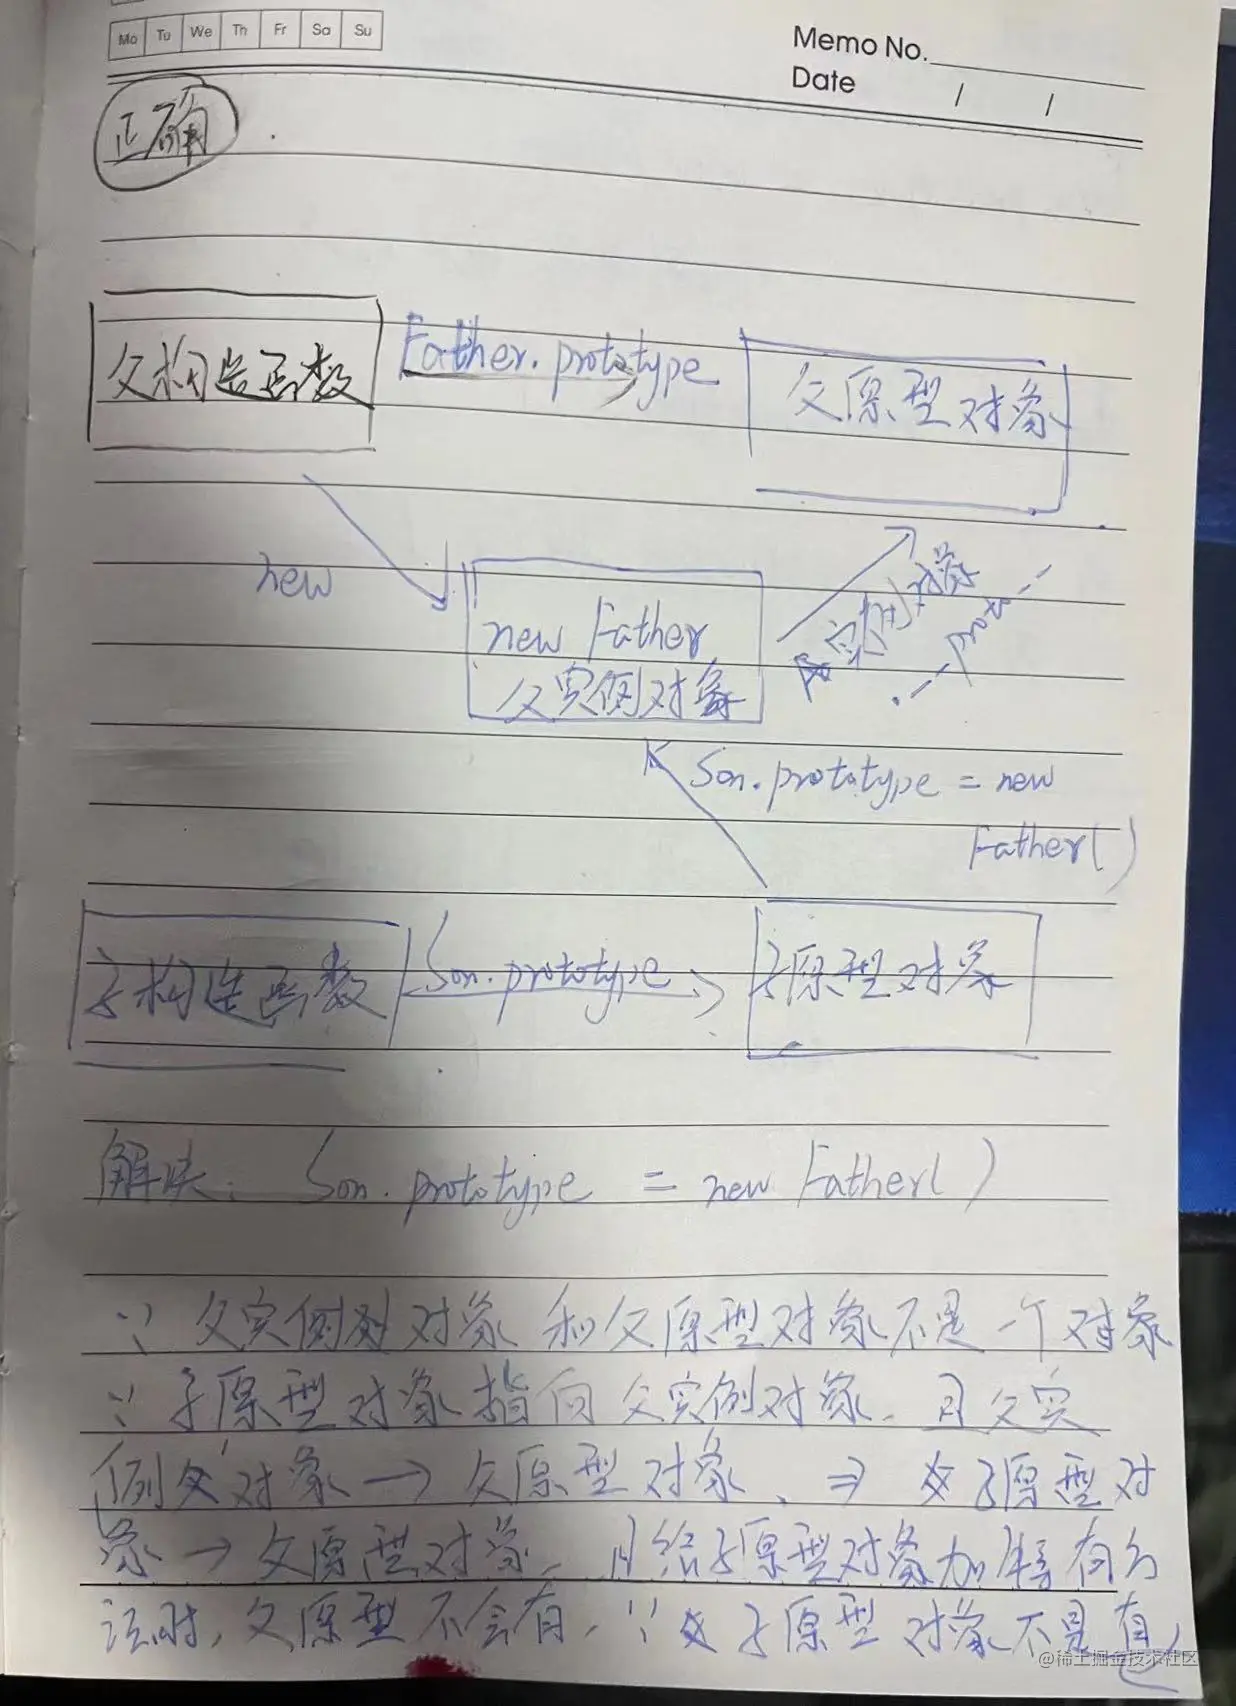 Mo Tu We Th Fr Sa Su
Memo No.
Date / /
正确
父构造函数 Father.prototype 父原型对象
new
new Father
父实例对象
实例对象
.__proto__
Son.prototype = new
Father()
子构造函数 Son.prototype 子原型对象
解决: Son.prototype = new Father()
∵ 父实例对象 和父原型对象不是一个对象
∵ 子原型对象指向父实例对象, 且父实
例对象 → 父原型对象, ⇒ 子原型对
象 → 父原型对象, 且给子原型对象加特有方
法时, 父原型不会有, ∵ 子原型对象不是
@稀土掘金技术社区